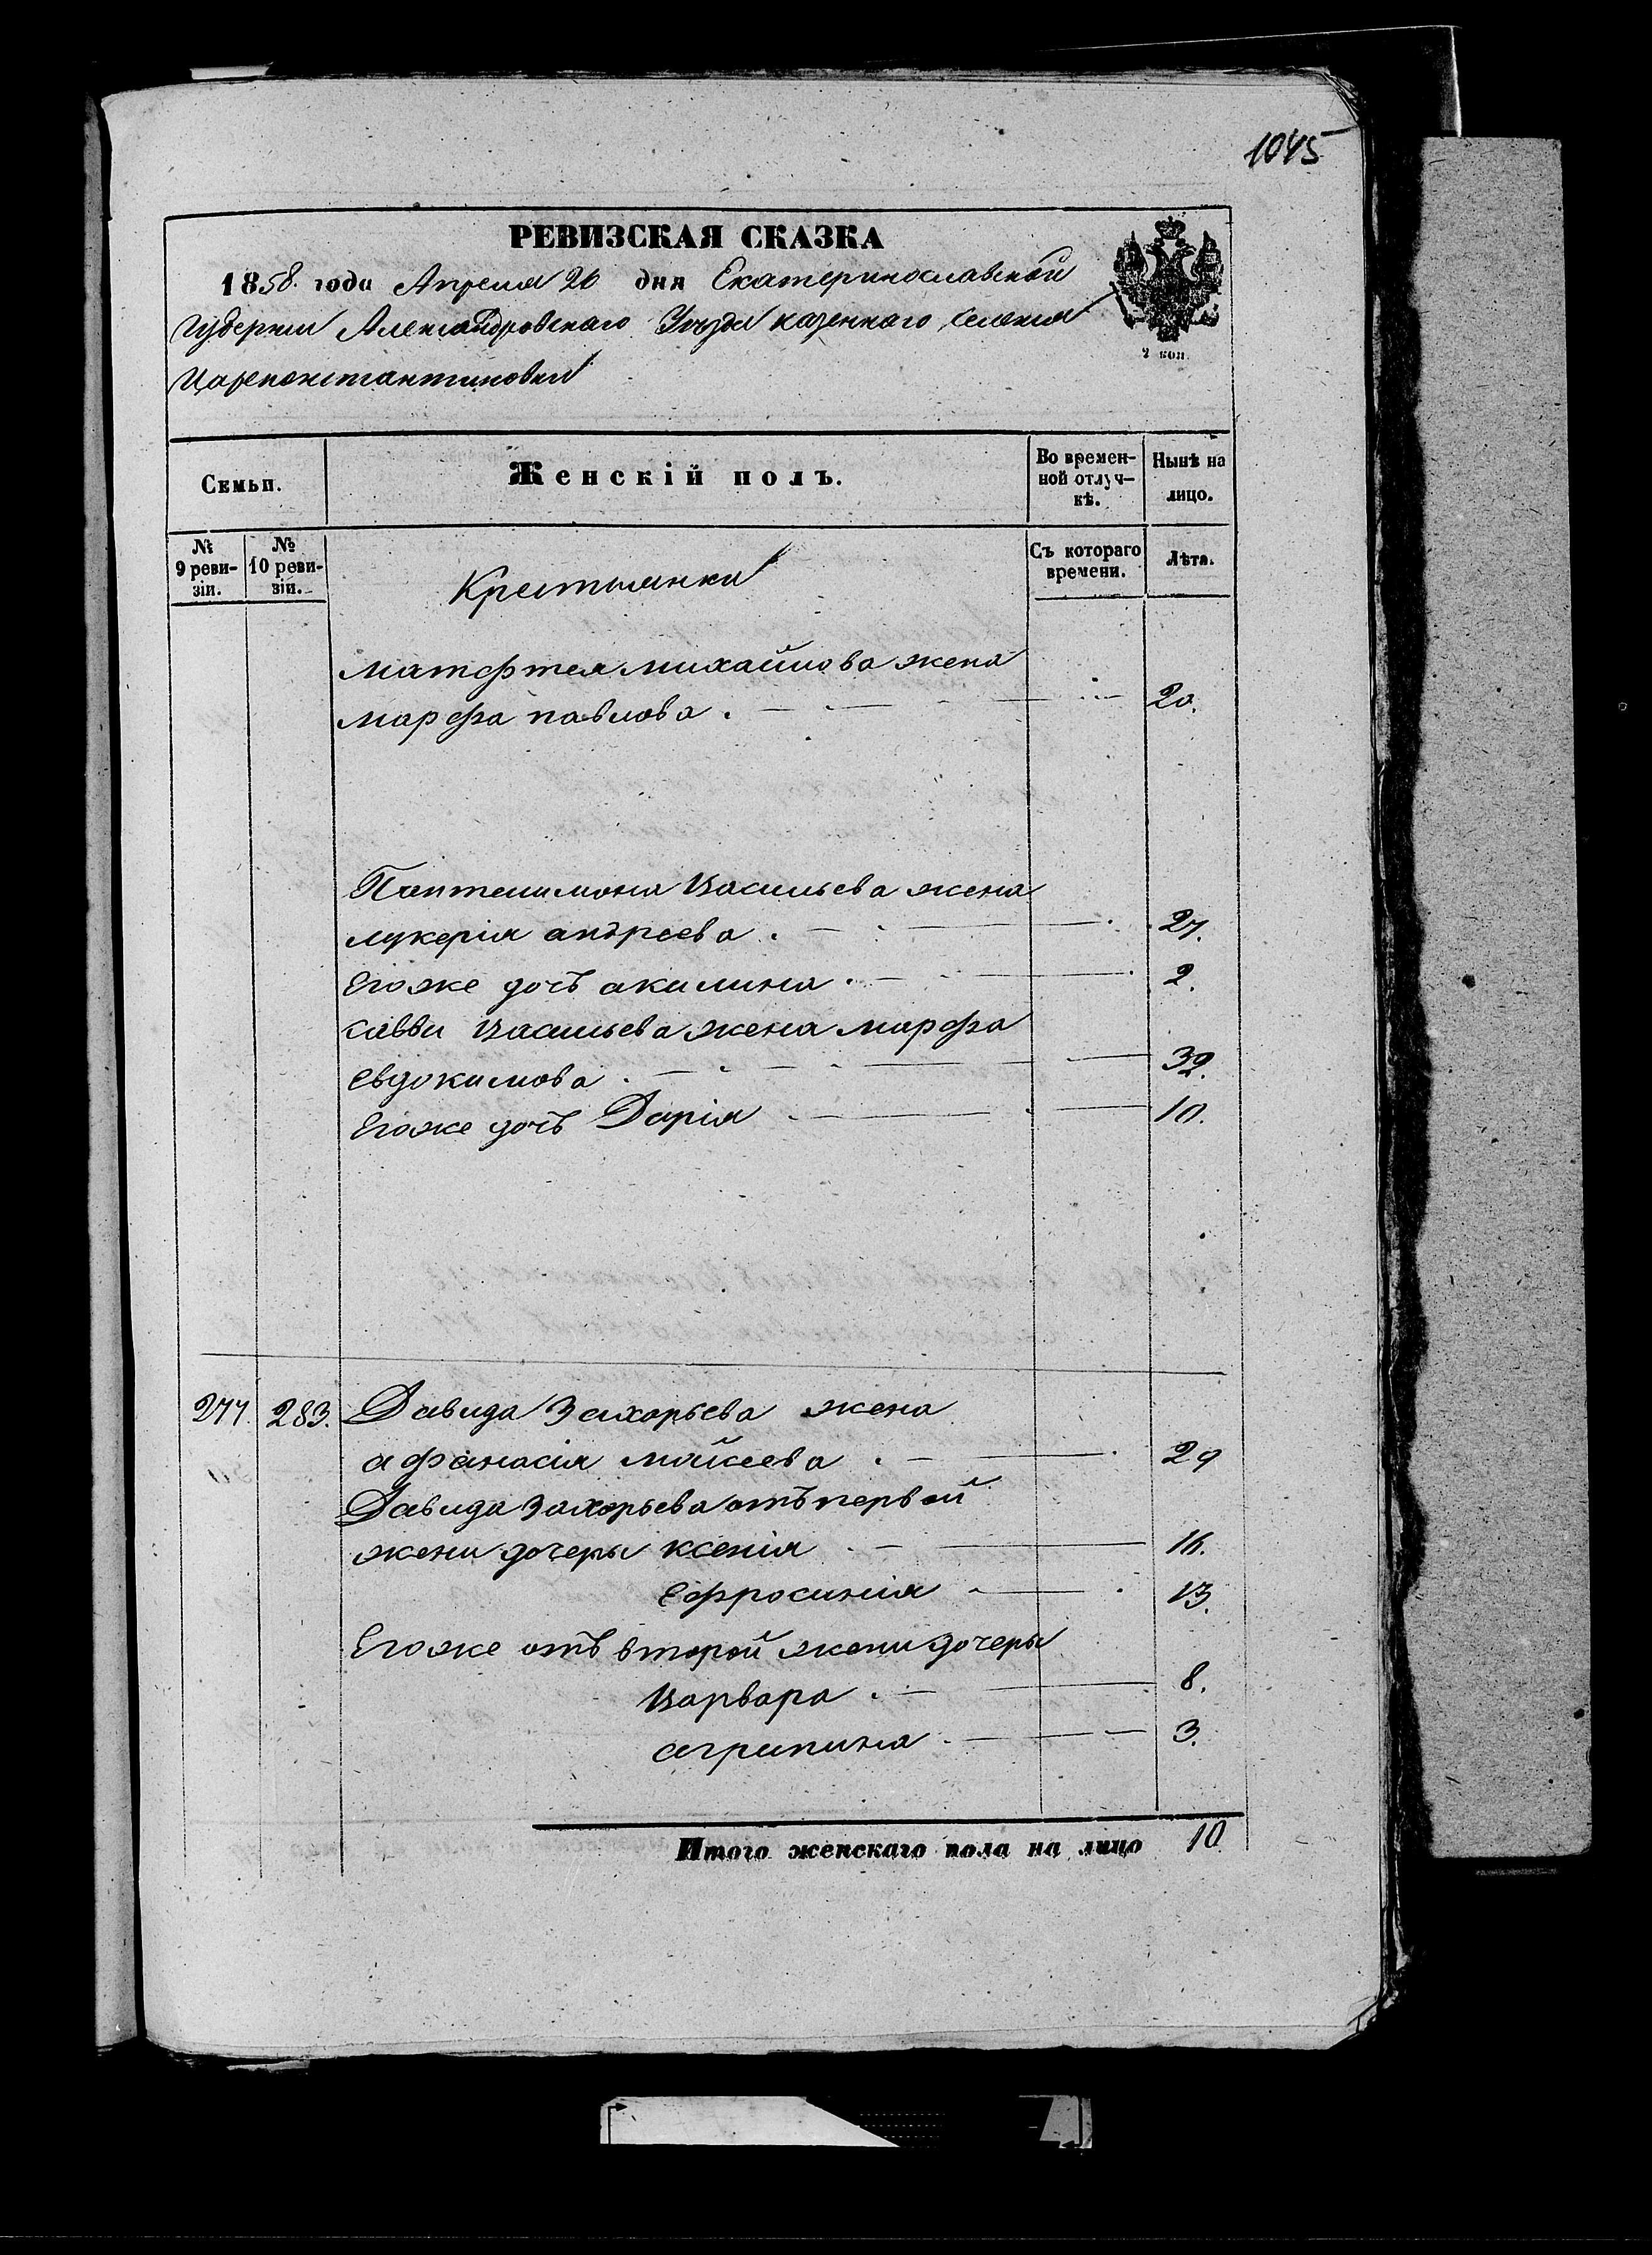 1045
РЕВИЗСКАЯ СКАЗКА
1858. года Апреля 26 дня Екатеринославской
Губернии Александровскаго Уезда казеннаго селения
Цареконстантиновки
2 коп.
Семьи.
Женскій полъ.
Во времен-
ной отлуч-
кѣ.
Нынѣ на
лицо.
№
9 реви-
зіи.
№
10 реви-
зіи.
Крестьянки
Съ котораго
времени.
Лѣта.
матфтея михайлова жена
марфа павлова. 20.
Пантелимона Васильева жена
лукерія андреева. 27.
Егоже дочъ акилина. 2.
савви Васильева жена марфа
евдокимова. 39.
Егоже дочъ Дарія 10.
277. 283. Давида Захарьева жена
афанасія мойсеева. 29
Давида Захарьева отъ первой
жени дочеры ксенія 16.
ефросинія 13.
Егоже отъ второй жени дочеры
Варвара. 8.
агрипина. 3.
Итого женскаго пола на лицо 10